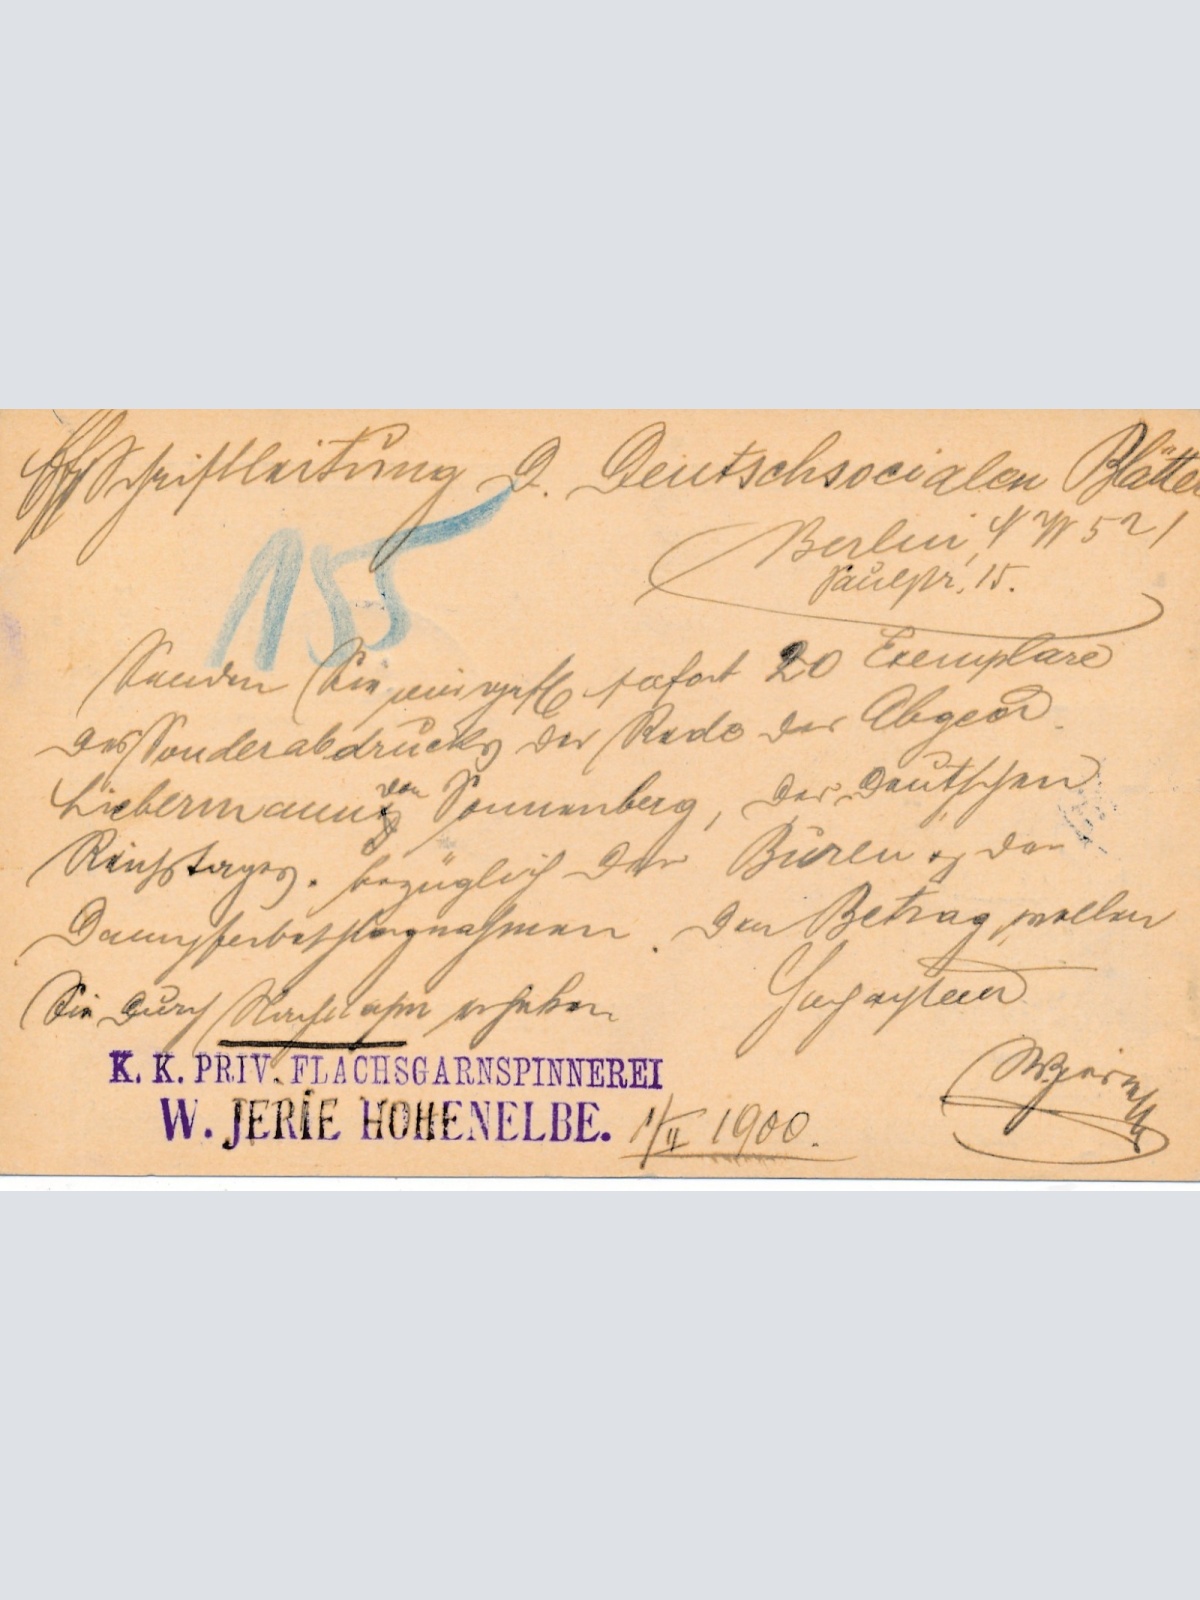 Schriftleitung d. Deutschsocialen Blätter
Berlin, N W 52 /
Paulstr. 15.
155
Senden Sie mir gefl. sofort 20 Exemplare
des Sonderabdrucks der Rede des Abgeor
Liebermann von Sonnenberg, des deutschen
Reichstages. bezüglich der Buren & der
Dampferbeschlagnahmen. Den Betrag wollen
Sie durch Nachnahme erheben
Hochachtend
K. K. PRIV. FLACHSGARNSPINNEREI
W. JERIE HOHENELBE. 1/II 1900.